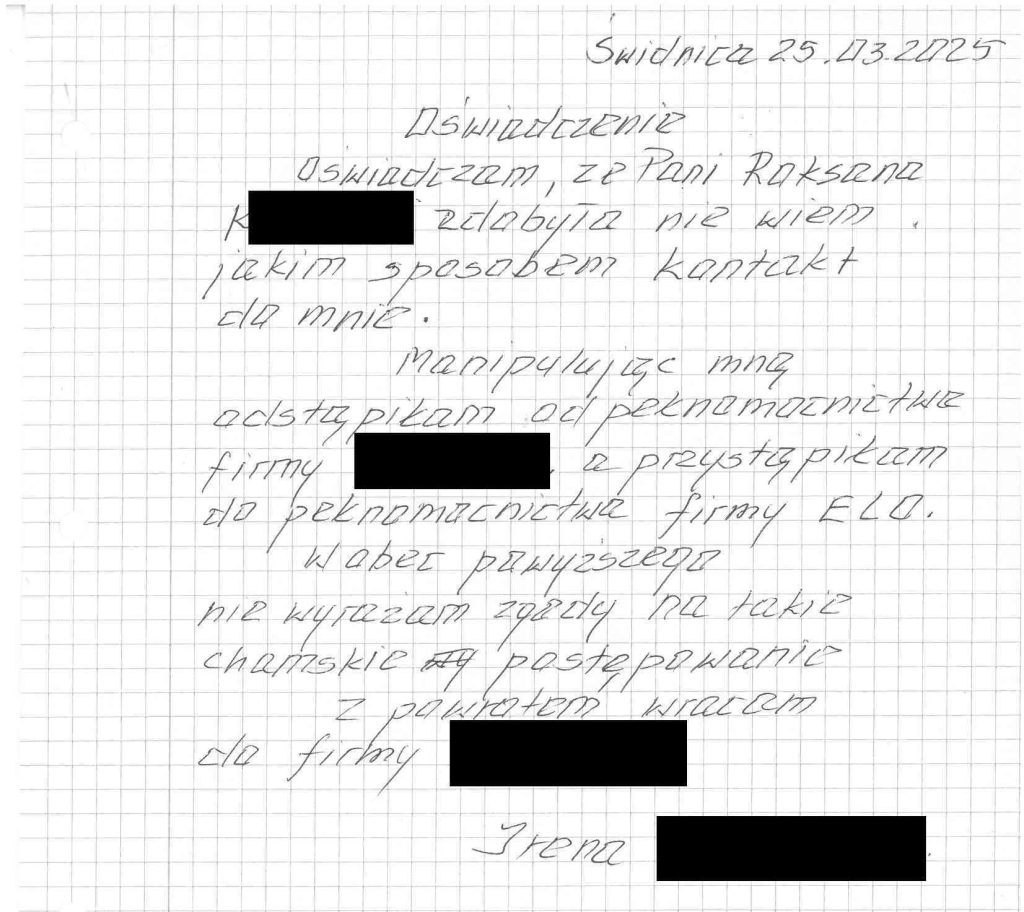 Świdnica 25.03.2025
Oświadczenie
Oświadczam, ze Pani Roksana
K zdobyła nie wiem .
jakim sposobem kontakt
do mnie.
Manipulując mną
odstąpiłam od pełnomocnictwa
firmy . a przystąpiłam
do pełnomocnictwa firmy ELO.
Wobec powyższego
nie wyrażam zgody na takie
chamskie postępowanie
Z powrotem wracam
do firmy
Irena .